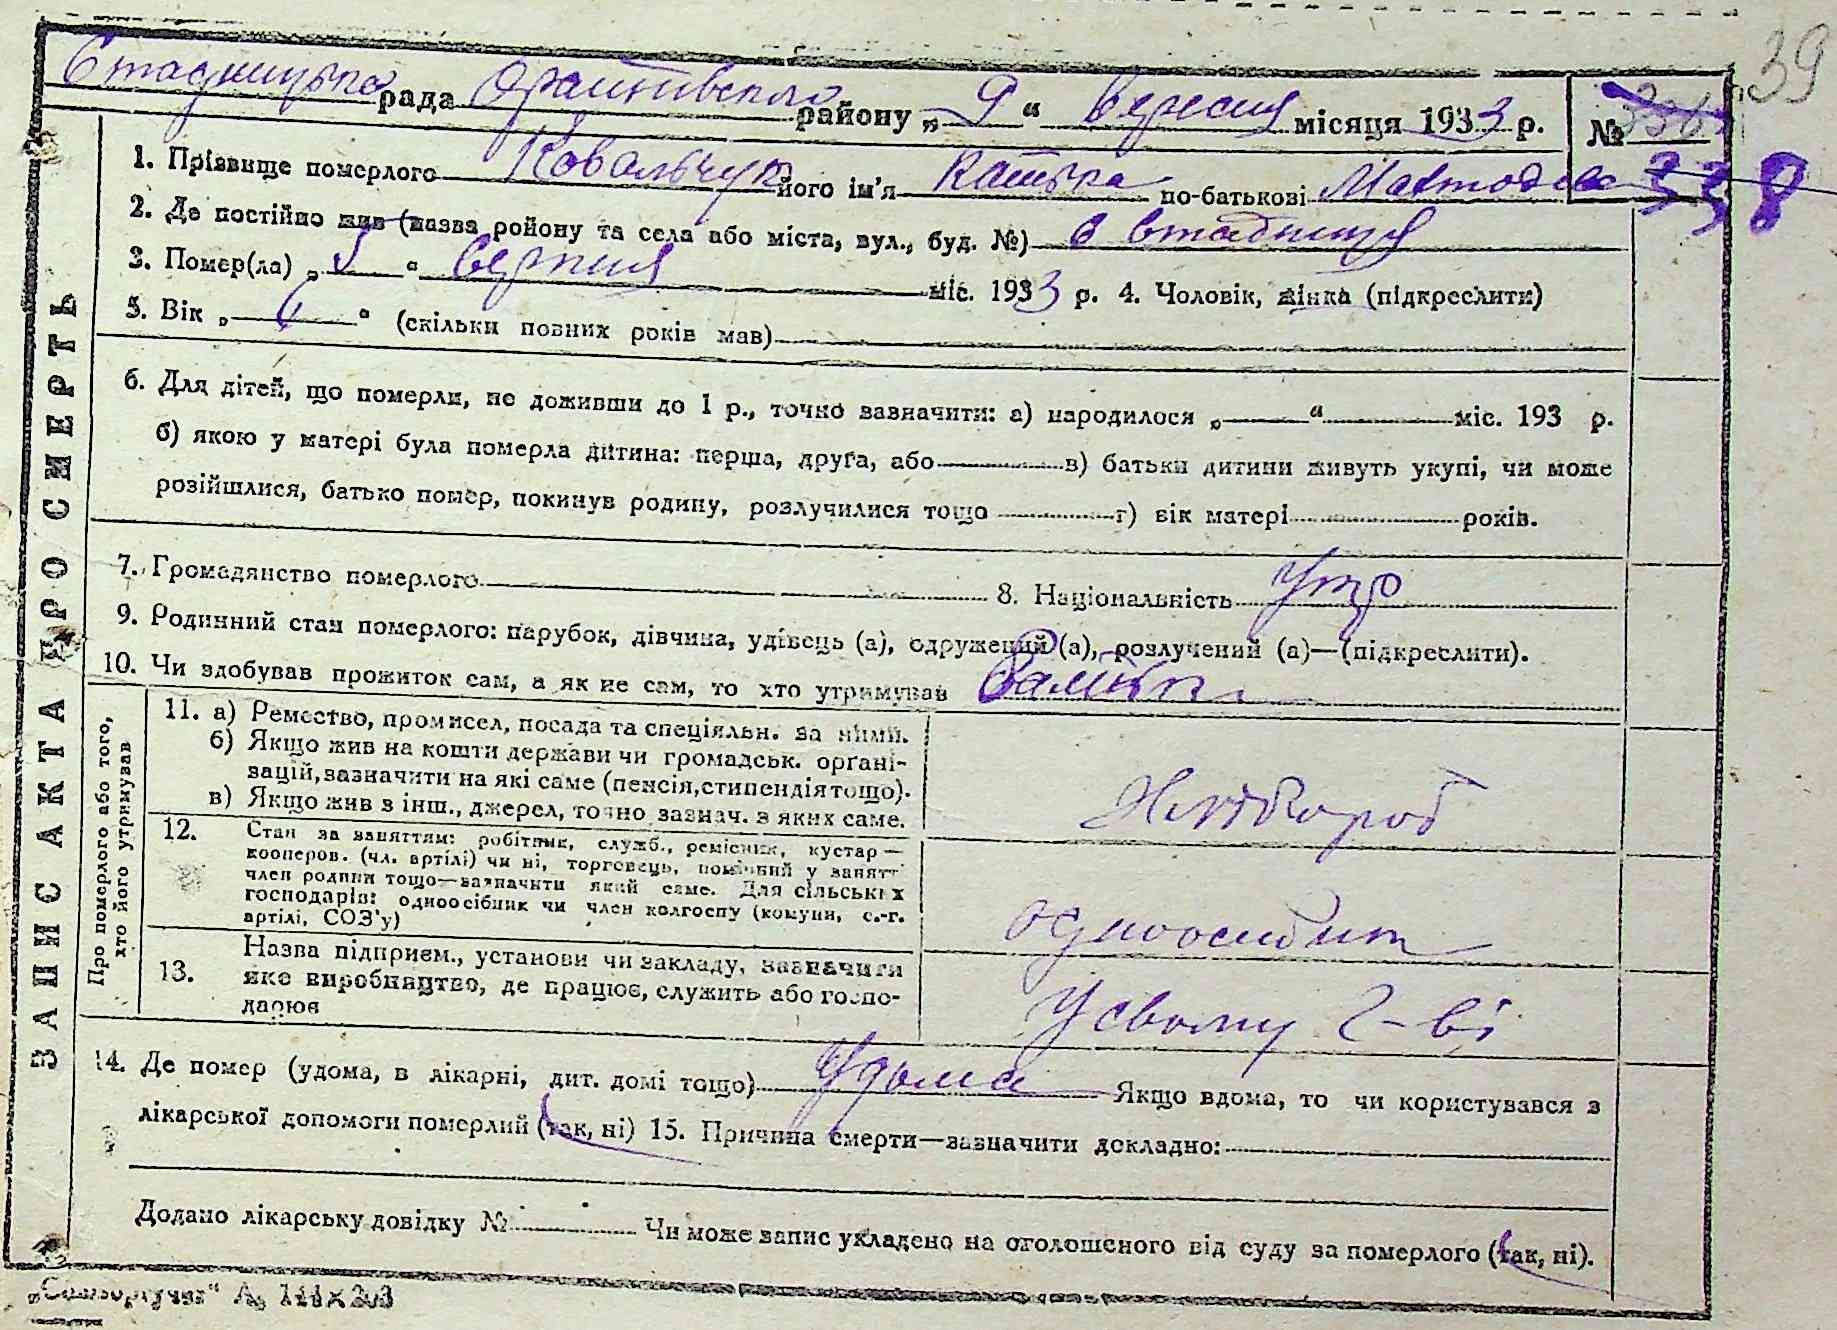 39
Стадницька рада Оратівського району „ 9 “ вересня місяця 1933 р. №
338
1. Прізвище померлого Ковальчук його ім'я Катька по-батькові
2. Де постійно жив (назва району та села або міста, вул., буд. №) с Стадниця
3. Помер(ла) „ 5 “ серпня міс. 1933 р. 4. Чоловік, жінка (підкреслити)
5. Вік „ 6 “ (скільки повних років мав)
6. Для дітей, що померли, не доживши до 1 р., точно зазначити: а) народилося „ “ міс. 193 р.
б) якою у матері була померла дитина: перша, друга, або в) батьки дитини живуть укупі, чи може
розійшлися, батько помер, покинув родину, розлучилися тощо г) вік матері років.
7. Громадянство померлого 8. Національність Укр
9. Родинний стан померлого: парубок, дівчина, удівець (а), одружений (а), розлучений (а)—(підкреслити).
10. Чи здобував прожиток сам, а як не сам, то хто утримував Батько
ЗАПИС АКТА ПРО СМЕРТЬ
Про померлого або того, хто його утримував
11. а) Ремество, промисел, посада та спеціяльн. за ними.
б) Якщо жив на кошти держави чи громадськ. органі-
зацій, зазначити на які саме (пенсія, стипендія тощо).
в) Якщо жив з інш., джерел, точно зазнач. з яких саме.
Хлібороб
12. Стан за заняттям: робітник, служб., ремісник, кустар—
кооперов. (чл. артілі) чи ні, торговець, помічний у занятті
член родини тощо—зазначити який саме. Для сільських
господарів: одноосібник чи член колгоспу (комуни, с.-г.
артілі, СОЗ'у)
одноосибник
13. Назва підприєм., установи чи закладу, зазначити
яке виробництво, де працює, служить або госпо-
дарює
У свому г-ві
14. Де помер (удома, в лікарні, дит. домі тощо) Удома Якщо вдома, то чи користувався з
лікарської допомоги померлий (так, ні) 15. Причина смерти—зазначити докладно:
Додано лікарську довідку № Чи може запис укладено на оголошеного від суду за померлого (так, ні).